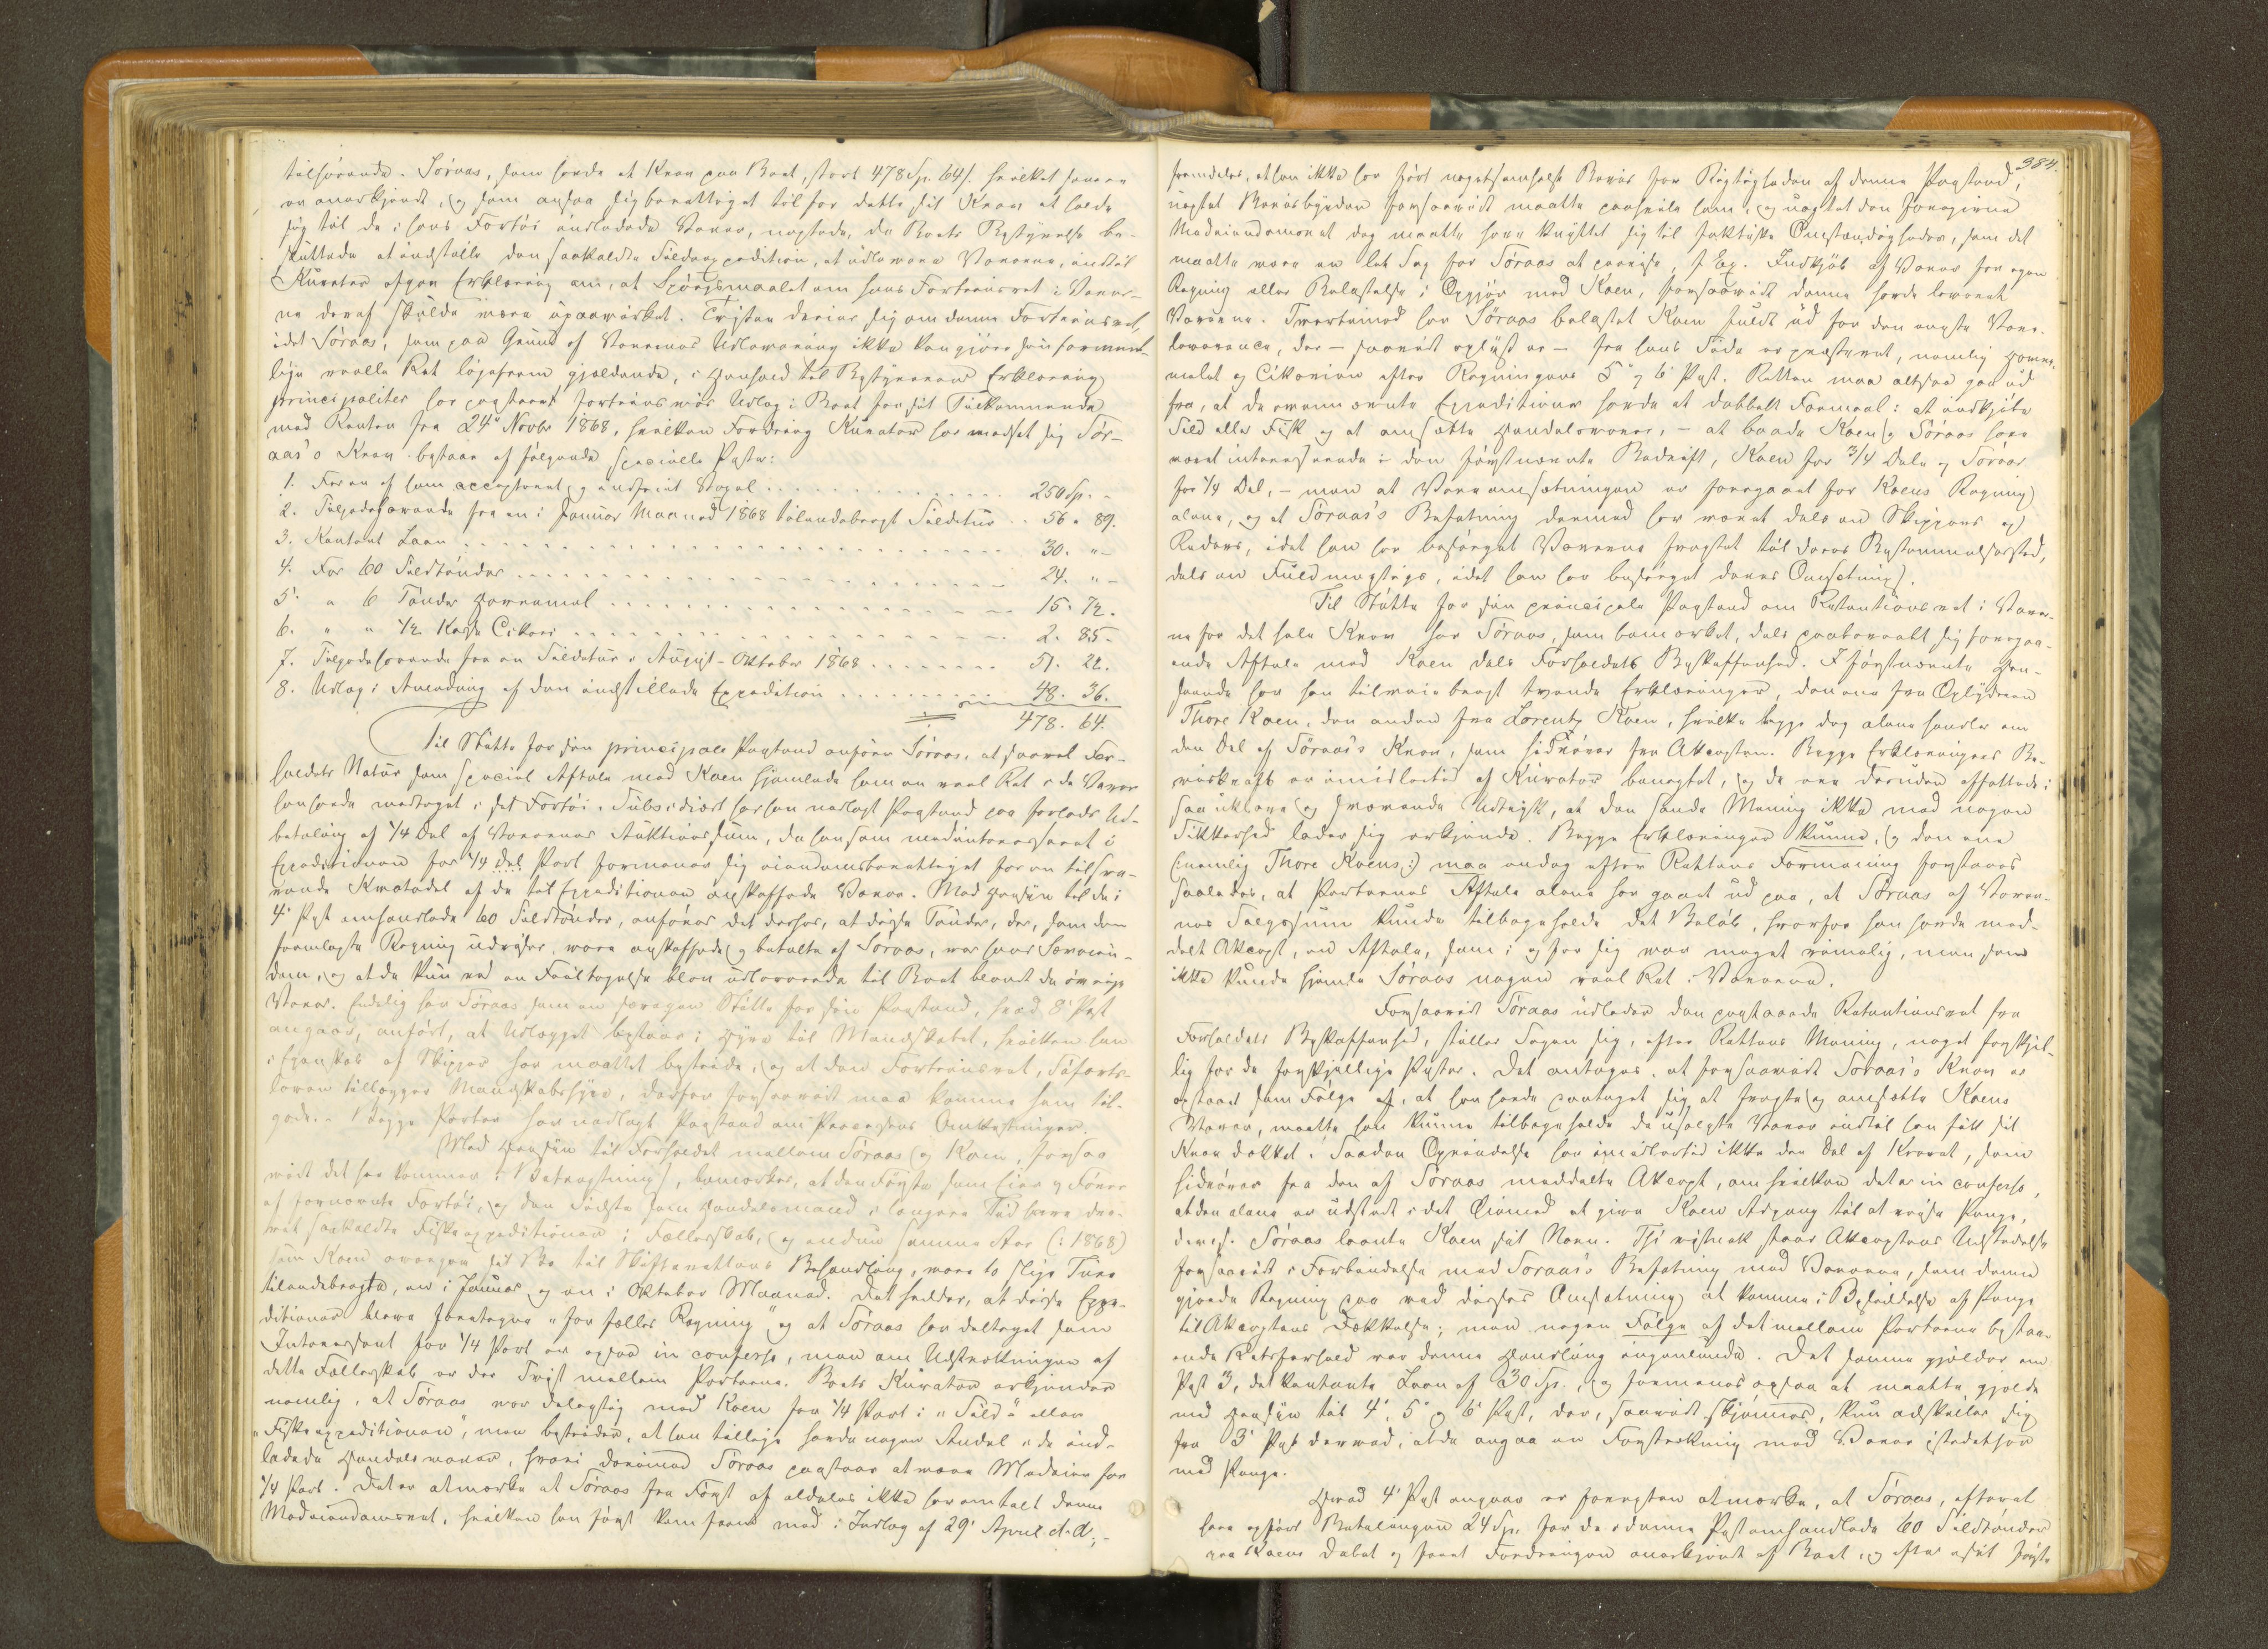 tilhørende. Søraas, som havde et Krav paa Boet, stort 478 Sp. 64 s. hvilket senere
er anerkjendt, og som ansaa sig berettiget til for dette sit Krav at holde
sig til de i hans Fartøi indladede Varer, negtede, da Boets Bestyrelse be-
sluttede at indstille den saakaldte Sildeexpedition, at udlevere Varerne, indtil
Kurator afgav Erklæring om, at Spørgsmaalet om hans Fortrinsret i Varer-
ne deraf skulde være upaavirket. Tvisten dreier sig om denne Fortrinsret,
idet Søraas, som paa Grund af Varernes Udlevering ikke kan gjøre sin formentlige
reelle Ret ligefrem gjældende, i Henhold til Bestyrerens Erklæring
principaliter har paastaaet fortrinsvis Udlæg i Boet for sit Tilkommende
med Renter fra 24de Novbr 1868, hvilken Fordring Kurator har modsat sig. Sør-
aas's Krav bestaar af følgende specielle Poster:
1. For en af ham acceptered og indfriet Vexel . . . 250 Sp. -
2. Tilgodehavende fra en i Januar Maaned 1868 tilendebragt Sildetur . . 56. 89.
3. Kontant Laan . . . 30. "-
4. For 60 Sildtønder . . . 24. "-
5. " 6 Tønder Havremel . . . 15. 72.
6. " " 1/2 Kasse Cikori . . . 2. 85.
7. Tilgodehavende fra en Sildetur i August-Oktober 1868 . . . 51. 22.
8. Udlæg i Anledning af den indstillede Expedition . . . 48. 36.
478. 64.
Til Støtte for sin principale Paastand anfører Søraas, at saavel For-
holdets Natur som speciel Aftale med Koen hjemlede ham en reel Ret i de Varer
han havde modtaget i sit Fartøi. Subsidiært har han nedlagt Paastand paa forlods Ud-
betaling af 1/4 Del af Varernes Auktionssum, da han som medinteresseret i
Expeditionen for 1/4 Del Part formener sig eiendomsberettiget for en tilsva-
rende Kvotadel af de til Expeditionen anskaffede Varer. Med Hensyn til de i
4de Post omhandlede 60 Sildtønder, anføres det derhos, at disse Tønder, der, som den
fremlagte Regning udviser, were anskaffede og betalte af Søraas, var hans Særeien-
dom, og at de kun ved en Feiltagelse blev udleverede til Boet blandt de øvrige
Varer. Endelig har Søraas som en særegen Støtte for sin Paastand, hvad 8de Post
angaar, anført, at Udlægget bestaar i Hyre til Mandskabet, hvilken han
i Egenskab af Skipper har maattet bestride, og at den Fortrinsret, Søfarts-
loven tillægger Mandskabshyre, derfor forsaavidt maa komme ham til-
gode. - Begge Parter har nedlagt Paastand om Processens Omkostninger.
Med Hensyn til Forholdet mellem Søraas og Koen, forsaa-
vidt det her kommer i Betragtning, bemærkes, at den Første som Eier og Fører
af fornævnte Fartøi, og den Sidste som Handelsmand i længere Tid have dre-
vet saakaldte Fiskeexpeditioner i Fællesskab, og endnu samme Aar (: 1868)
som Koen overgav sit Bo til Skifterettens Behandling, were to slige Ture
tilendebragte, en i Januar og en i Oktober Maaned. Det hedder, at disse Expe-
ditioner bleve foretagne "for fælles Regning" og at Søraas har deltaget som
Interessent for 1/4 Part er ogsaa in confesso, men om Udstrækningen af
dette Fællesskab er der Tvist mellem Parterne. Boets Kurator erkjender
nemlig, at Søraas var delagtig med Koen for 1/4 Part i "Silde" eller
"Fiskeexpeditionen", men bestrider, at han tillige havde nogen Andel i de ind-
ladede Handelsvarer, hvori derimod Søraas paastaar at være Medeier for
1/4 Part. Det er at mærke at Søraas fra Først af aldeles ikke har omtalt denne
Medeiendomsret, hvilken han først kom frem med i Indlæg af 29de April d. A.; -
384.
fremdeles, at han ikke har ført nogetsomhelst Bevis for Rigtigheden af denne Paastand,
uagtet Bevisbyrden forsaavidt maatte paahvile ham, og uagtet den foregivne
Medeiendomsret dog maatte have knyttet sig til faktiske Omstændigheder, som det
maatte være en let Sag for Søraas at paavise, f. Ex. Indkjøb af Varer for egen
Regning eller Belastelse i Opgjør med Koen, forsaavidt denne havde leveret
Varerne. Tvertimod har Søraas belastet Koen fuldt ud for den eneste Vare-
leverance, der - saavidt oplyst er - fra hans Side er præsteret, nemlig Havre-
melet og Cikorien efter Regningens 5te og 6te Post. Retten maa altsaa gaa ud
fra, at de omnævnte Expeditioner havde et dobbelt Formaal: at indkjøbe
Sild eller Fisk og at omsætte Handelsvarer, - at baade Koen og Søraas have
været interesserede i den førstnævnte Bedrift, Koen for 3/4 Dele og Søraas
for 1/4 Del, - men at Vareomsætningen er foregaaet for Koens Regning
alene, og at Søraas's Befatning dermed har været dels en Skippers og
Reders, idet han har besørget Varerne fragtet til deres Bestemmelsessted,
dels en Fuldmægtigs, idet han har besørget deres Omsætning.
Til Støtte for sin principale Paastand om Retentionsret i Varer-
ne for det hele Krav har Søraas, som bemærket, dels paaberaabt sig foregaa-
ende Aftale med Koen dels Forholdets Beskaffenhed. I førstnævnte Hen-
seende har han tilveiebragt tvende Erklæringer, den ene fra Opbyderen
Thore Koen, den anden fra Lorentz Koen, hvilke begge dog alene handler om
den Del af Søraas's Krav, som hidrører fra Akcepten. Begge Erklæringers Be-
viskraft er imidlertid af Kurator benegtet, og de ere desuden affattede i
saa uklare og svævende Udtryk, at den sande Mening ikke med nogen
Sikkerhed lader sig erkjende. Begge Erklæringer kunne, og den ene
(nemlig Thore Koens:) maa endog efter Rettens Formening forstaaes
saaledes, at Parternes Aftale alene har gaaet ud paa, at Søraas af Varer-
nes Salgssum kunde tilbageholde det Beløb, hvorfor han havde med-
delt Akcept, en Aftale, som i og for sig var meget rimelig, men som
ikke kunde hjemle Søraas nogen reel Ret i Varerne.
Forsaavidt Søraas udleder den paastaaede Retentionsret fra
Forholdets Beskaffenhed, stiller Sagen sig, efter Rettens Mening, noget forskjel-
lig for de forskjellige Poster. Det antages, at forsaavidt Søraas's Krav er
opstaaet som Følge af, at han havde paataget sig at fragte og omsætte Koens
Varer, maatte han kunne tilbageholde de usolgte Varer indtil han fik sit
Krav dækket. Saadan Oprindelse har imidlertid ikke den Del af Kravet, som
hidrører fra den af Søraas meddelte Akcept, om hvilken det er in confesso,
at den alene er udstedt i det Øiemed at give Koen Adgang til at reise Penge,
d.v.s. Søraas laante Koen sit Navn. Thi vistnok staar Akceptens Udstedelse
forsaavidt i Forbindelse med Søraas's Befatning med Varerne, som denne
gjorde Regning paa ved disses Omsætning at komme i Besiddelse af Penge
til Akceptens Dækkelse; men nogen Følge af det mellem Parterne bestaa-
ende Retsforhold var denne Handling ingenlunde. Det samme gjælder om
Post 3, det kontante Laan af 30 Sp., og formenes ogsaa at maatte gjælde
med Hensyn til 4de, 5te og 6te Post, der, saavidt skjønnes, kun adskiller sig
fra 3die Post derved, at de angaa en Forstrækning med Varer istedetfor
med Penge.
Hvad 4de Post angaar er forresten at mærke, at Søraas, efterat
have opført Betalingen 24 Sp. for de i denne Post omhandlede 60 Sildtønder
paa Koens Debet og faaet Fordringen anerkjendt af Boet, og efter i sit første